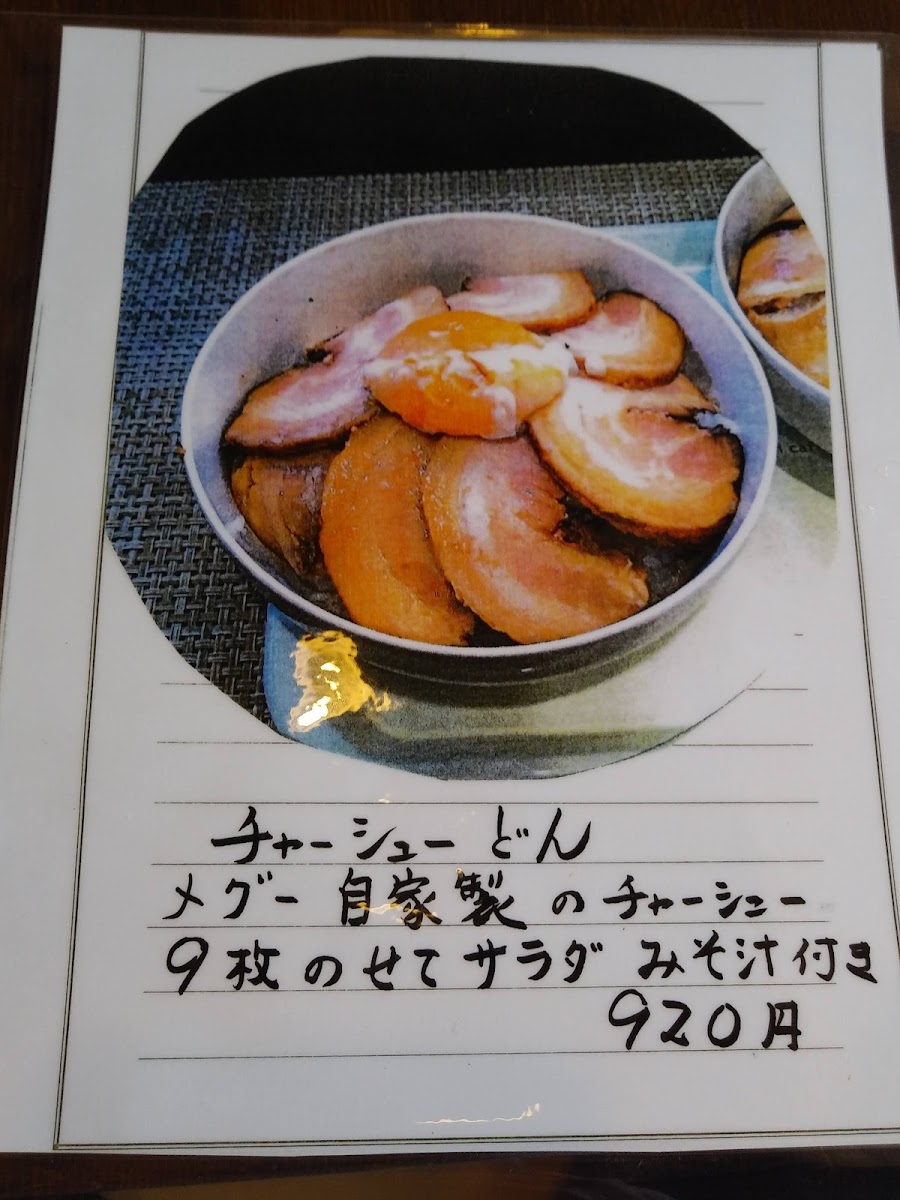 チャーシューどん
メグー自家製のチャーシュー
9枚のせてサラダ みそ汁付き
920円